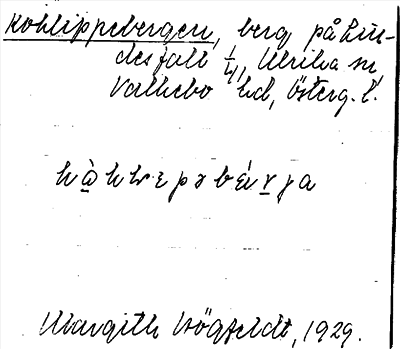 Kohlippebergen, berg på Lin-
desfall 1/4, Ulrika sn,
Valkebo hd, Österg. l.
Margith Högfeldt, 1929.